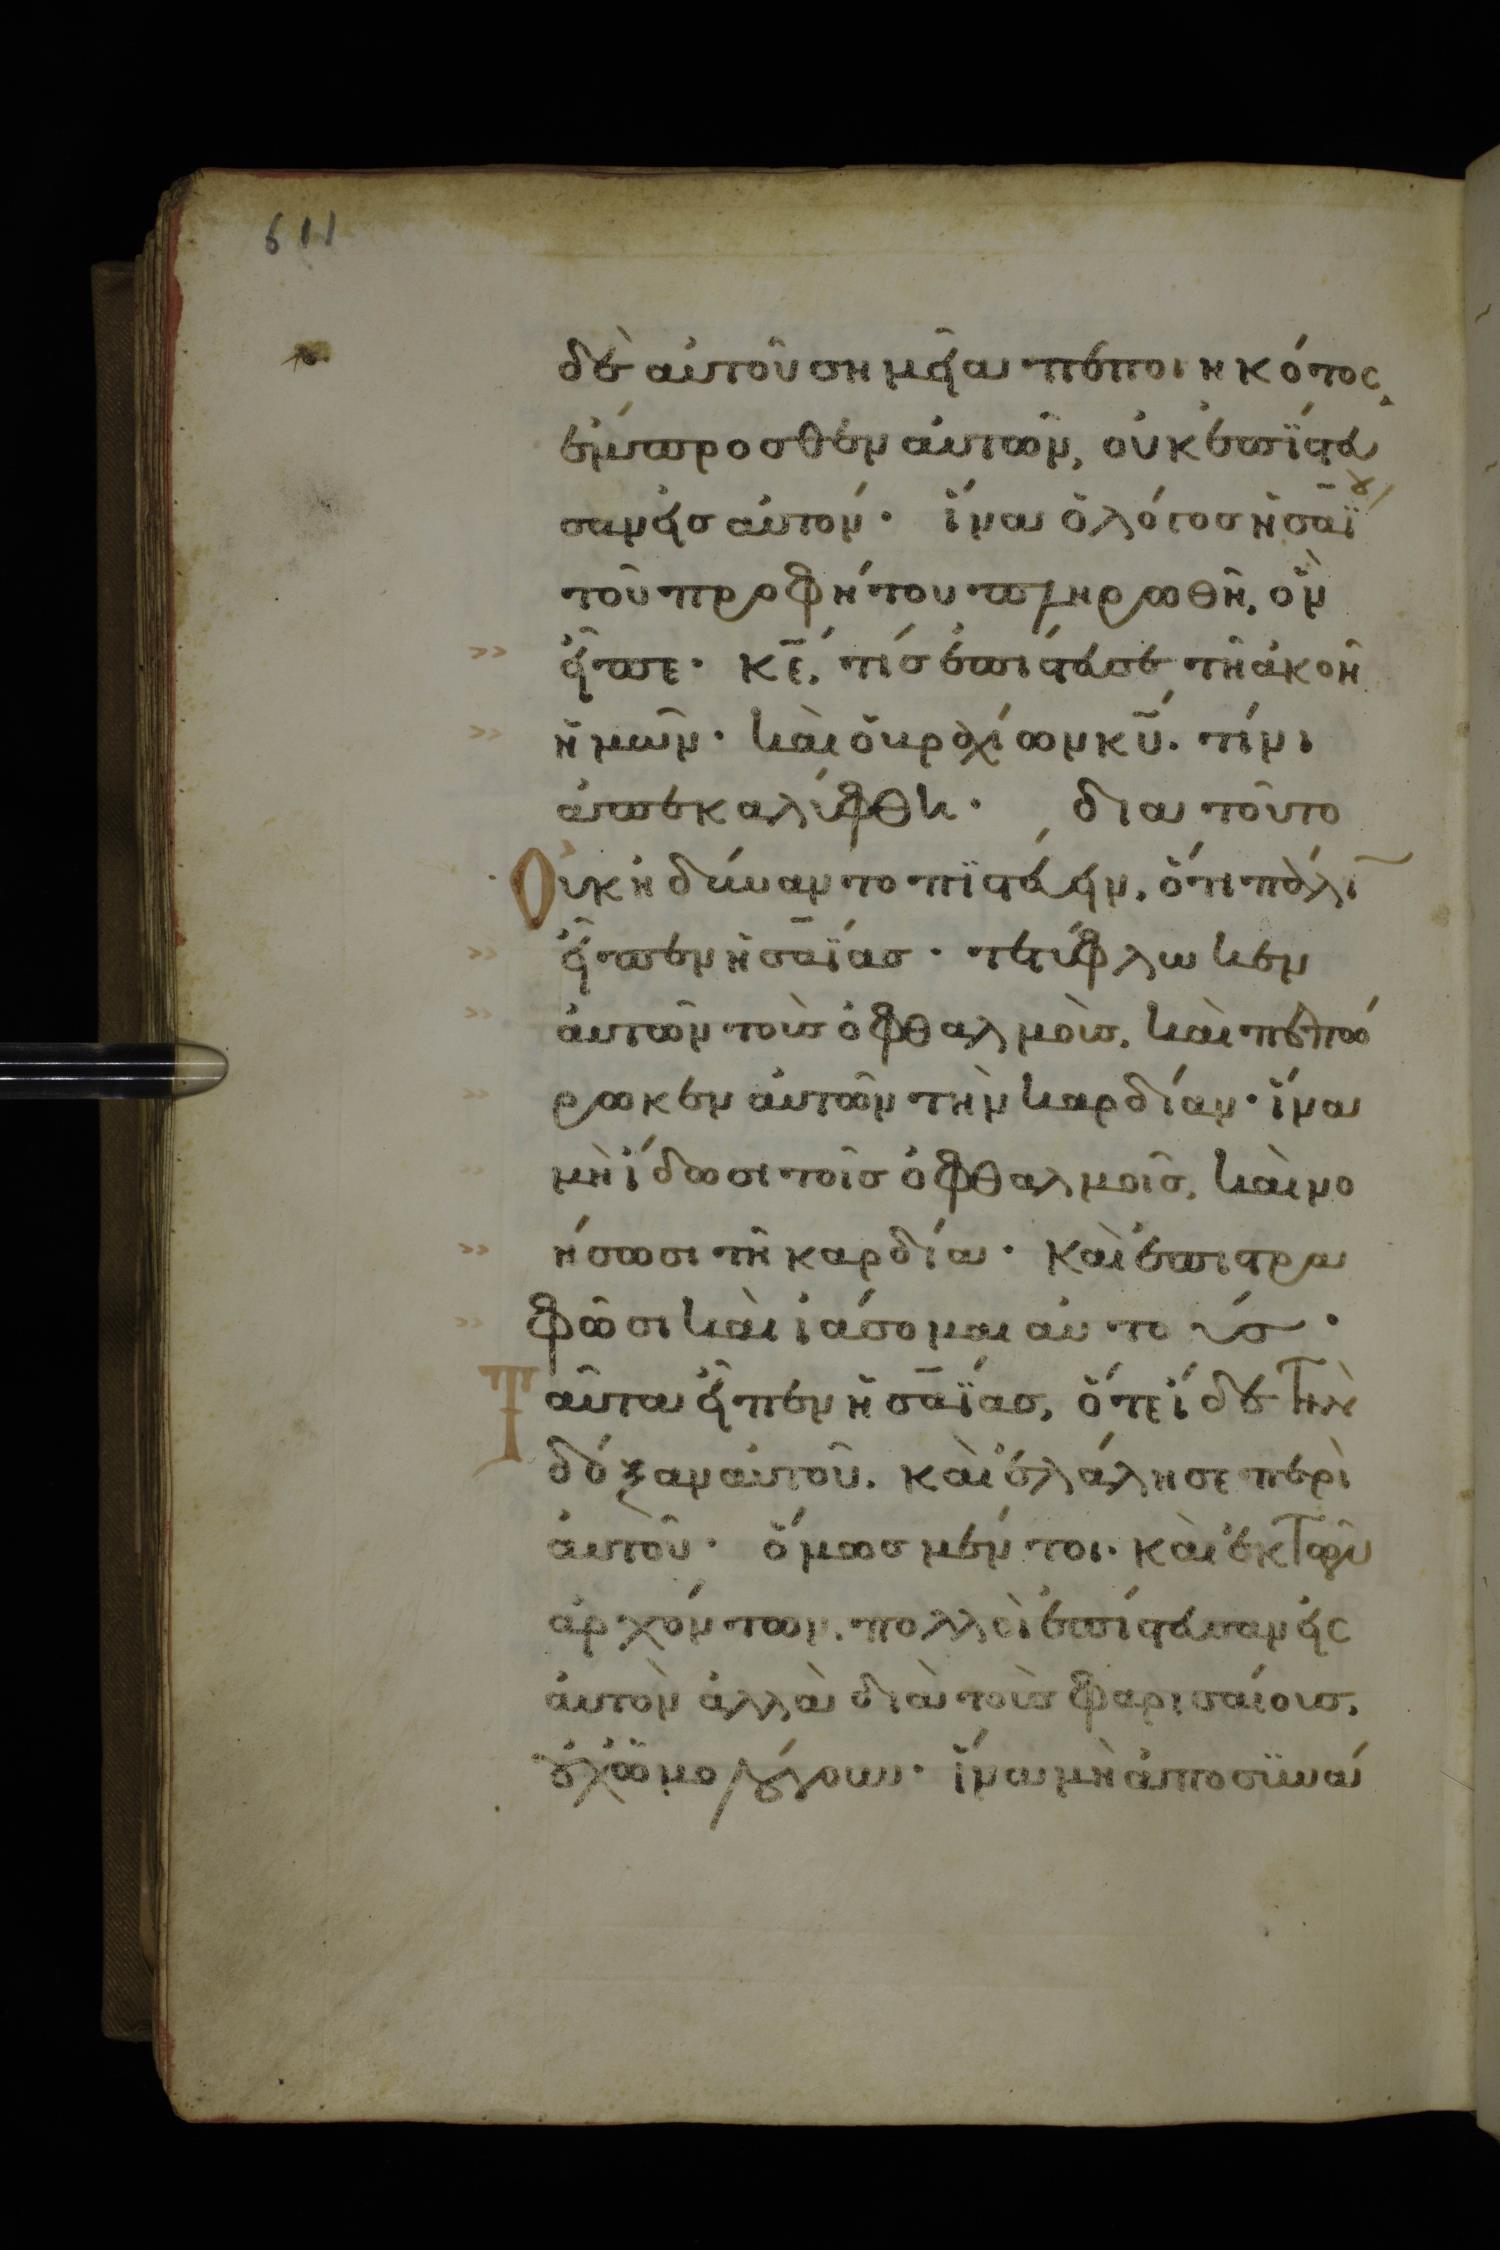 611
δὲ αὐτοῦ σημεῖα πεποιηκότος
ἔμπροσθεν αὐτῶν, οὐκ ἐπίστευ
σαν εἰς αὐτόν· ἵνα ὁ λόγος ἡσαΐου
τοῦ προφήτου πληρωθῆ, ὃν
εἶπε· κε̄, τίς ἐπίστευσε τῆ ἀκοῆ
ἡμῶν· καὶ ὁ βραχίων κῡ· τίνι
ἀπεκαλύφθη· δια τοῦτο
Οὐκ ἠδύναντο πιστεύειν, ὅτι πάλι
εἶπεν ἡσαΐας· τετύφλωκεν
αὐτῶν τοὺς ὀφθαλμοὺς, καὶ πεπώ
ρωκεν αὐτῶν τὴν καρδίαν· ἵνα
μὴ ἴδωσι τοῖς ὀφθαλμοῖς, καὶ νο
ήσωσι τῆ καρδία· καὶ ἐπιστρα
φῶσι καὶ ἰάσομαι αὐτούς·
Ταῦτα εἶπεν ἡσαΐας, ὅτε ἴδε τὴν
δόξαν αὐτοῦ. καὶ ἐλάλησε περὶ
αὐτοῦ· ὅμως μέντοι· καὶ ἐκ τῶν
ἀρχόντων, πολλοὶ ἐπίστευσαν εἰς
αὐτὸν ἀλλὰ διὰ τοὺς φαρισαίους,
οὐχ ὡμολόγουν· ἵνα μὴ ἀποσυνά